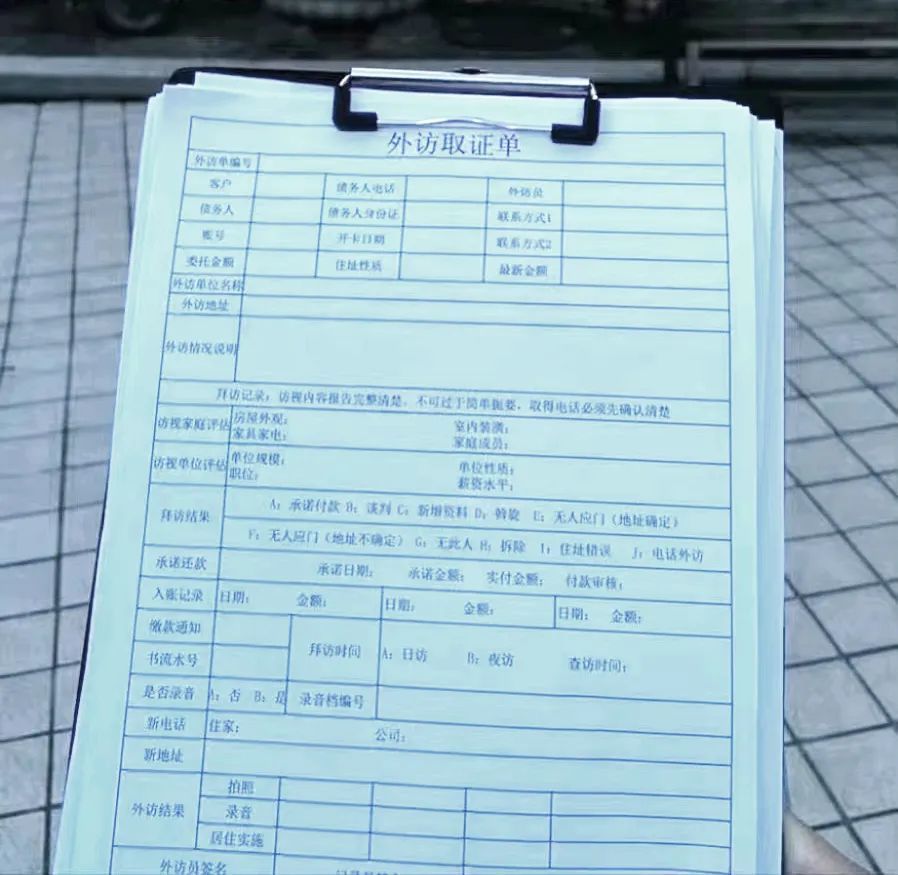 外访取证单
外访单编号
客户 债务人电话 外访员
债务人 债务人身份证 联系方式1
账号 开卡日期 联系方式2
委托金额 住址性质 最新金额
外访单位名称
外访地址
外访情况说明
拜访记录：访视内容报告完整清楚，不可过于简单扼要，取得电话必须先确认清楚
访视家庭评估 房屋外观： 室内装潢：
家具家电： 家庭成员：
访视单位评估 单位规模： 单位性质：
职位： 薪资水平：
拜访结果 A：承诺付款 B：谈判 C：新增资料 D：斡旋 E：无人应门（地址确定）
F：无人应门（地址不确定） G：无此人 H：拆除 I：住址错误 J：电话外访
承诺还款 承诺日期： 承诺金额： 实付金额： 付款审核：
入账记录 日期： 金额： 日期： 金额： 日期： 金额：
缴款通知
书流水号 拜访时间 A：日访 B：夜访 查访时间：
是否录音 A：否 B：是 录音档编号
新电话 住家： 公司：
新地址
外访结果 拍照
录音
居住实施
外访员签名